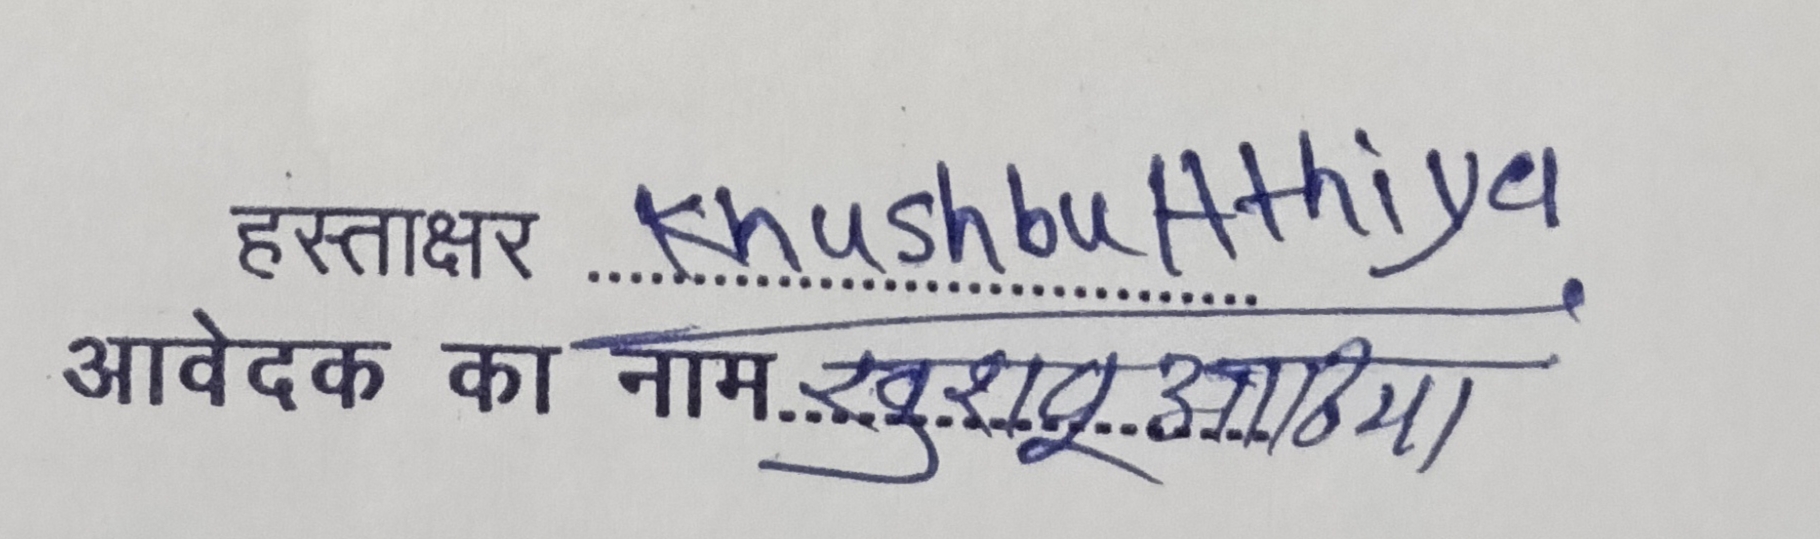 हस्ताक्षर Khushbu Athiya
आवेदक का नाम खुशबू आठिया